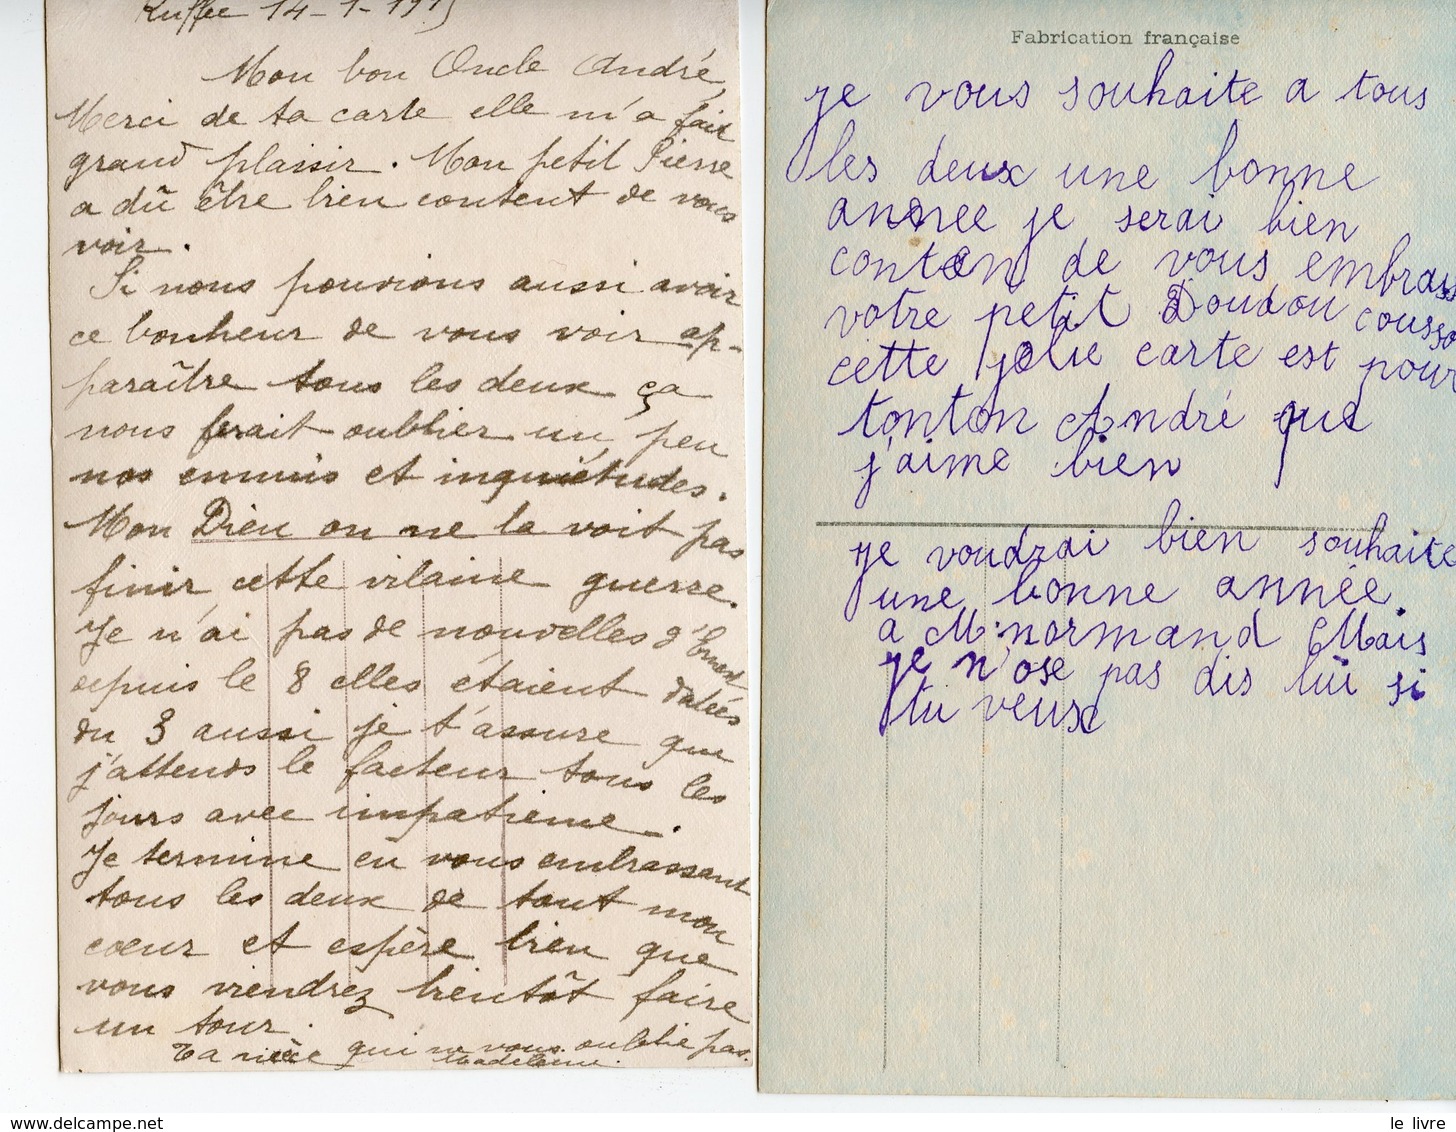 Ruffec 14-1-1915
Mon bon Oncle André,
Merci de ta carte elle m'a fait
grand plaisir. Mon petit Pierre
a dû être bien content de vous
voir.
Si nous pouvions aussi avoir
ce bonheur de vous voir ap-
paraître tous les deux ça
nous ferait oublier un peu
nos ennuis et inquiétudes.
Mon Dieu on ne la voit pas
finir cette vilaine guerre.
Je n'ai pas de nouvelles d'Ernest
depuis le 8 elles étaient datées
du 3 aussi je t'assure que
j'attends le facteur tous les
jours avec impatience.
Je termine en vous embrassant
tous les deux de tout mon
coeur et espère bien que
vous viendrez bientôt faire
un tour.
Ta nièce qui ne vous oublie pas.
Madeleine
Fabrication française
je vous souhaite a tous
les deux une bonne
annee je serai bien
conten de vous embrass
votre petit Doudou
cette jolie carte est pour
tonton André que
j'aime bien
je voudrai bien souhaite
une bonne année
a M. normand Mais
je n'ose pas dis lui si
tu veux
le livre